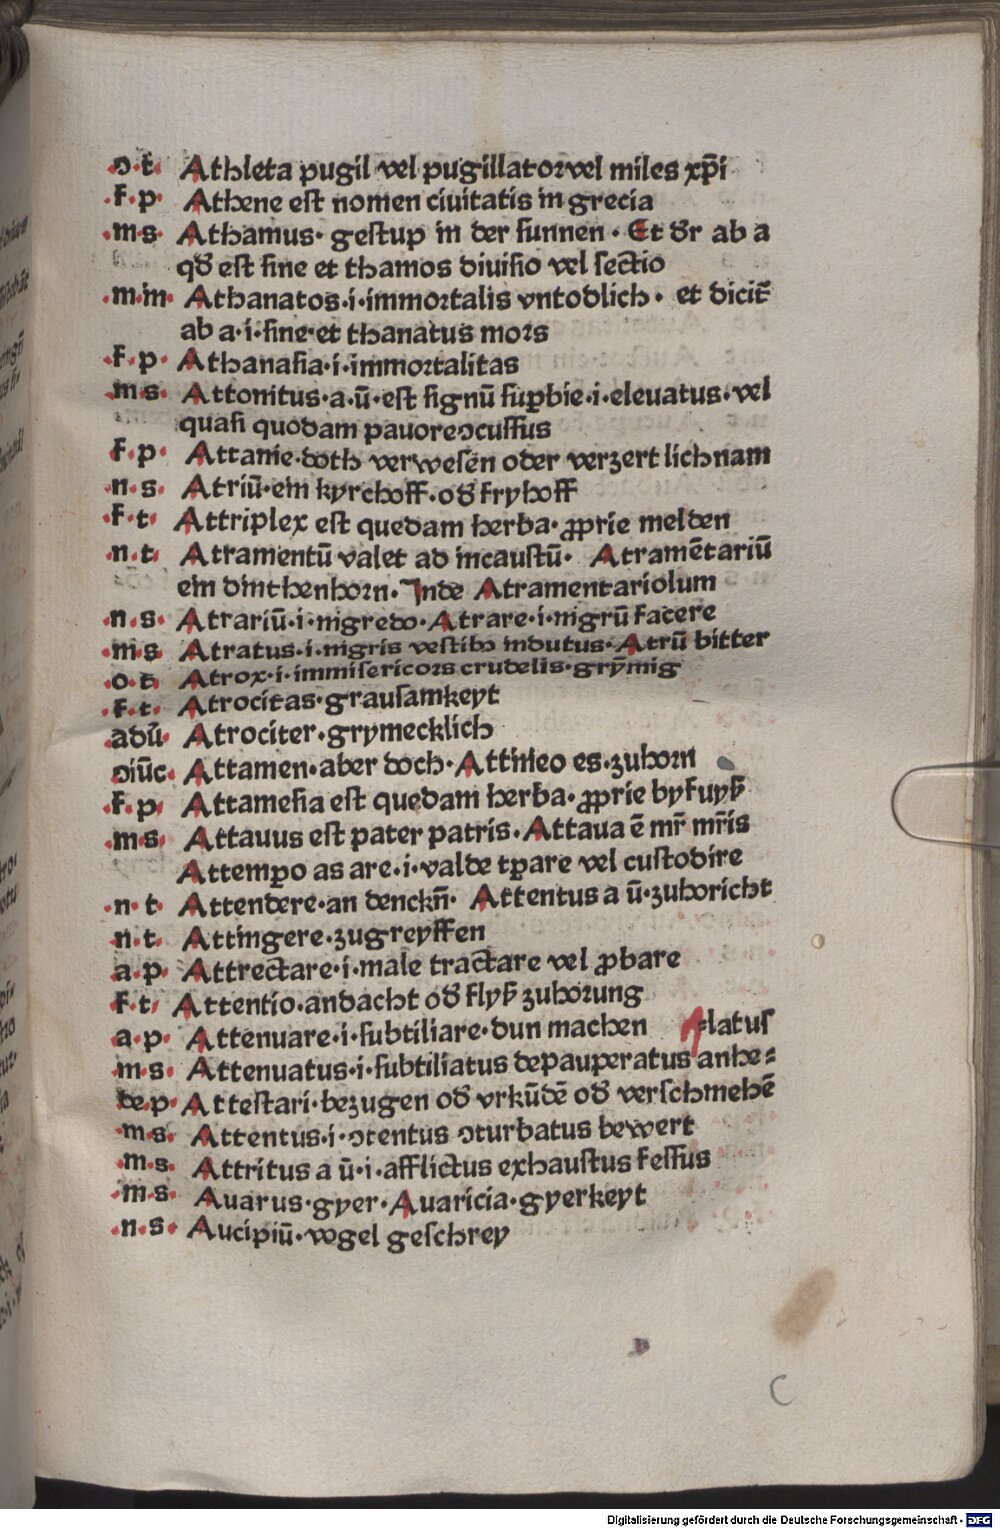 ɔ·t· Athleta pugil vel pugillator vel miles xp̄i
·f·p· Athene est nomen ciuitatis in grecia
·m·s· Athamus· gestup in der sunnen· Et dr̄ ab a
qd̄ est sine et thamos diuisio vel sectio
·m·m· Athanatos·i·immortalis vntodlich· et dicit̄
ab a·i·sine·et thanatus mors
·f·p· Athanasia·i·immortalitas
·m·s· Attonitus·a·ū·est signū suꝑbie·i·eleuatus·vel
quasi quodam pauore ɔcussus
·f·p· Attanie·doth verwesen oder verzert lichnam
·n·s· Atriū·ein kyrchoff·od̄ fryhoff
·f·t· Attriplex est quedam herba·ꝓprie melden
·n·t· Atramentū valet ad incaustū· Atramētariū
ein dinthenhorn·Inde Atramentariolum
·n·s· Atrariū·i·nigredo·Atrare·i·nigrū facere
·m·s· Atratus·i·nigris vestibꝫ indutus·Atrū bitter
·o·t· Atrox·i·immisericors crudelis·grȳmig
·f·t· Atrocitas·grausamkeyt
adū· Atrociter·grymecklich
ɔiūc· Attamen·aber doch·Attineo es·zuhorn
·f·p· Attamesia est quedam herba·ꝓprie byfuyß
·m·s· Attauus est pater patris·Attaua ē mr̄ mr̄is
Attempo as are·i·valde tꝑare vel custodire
·n·t· Attendere·an denckn̄· Attentus a ū·zuhoricht
·n·t· Attingere·zugreyffen
·a·p· Attrectare·i·male tractare vel ꝓbare
·f·t· Attentio·andacht od̄ flyß zuhorung
·a·p· Attenuare·i·subtiliare·dun machen latus
·m·s· Attenuatus·i·subtiliatus depauperatus anhe⸗
de·p· Attestari·bezugen od̄ vrkūdē od̄ verschmehē
·m·s· Attentus·i·ɔtentus ɔturbatus bewert
·m·s· Attritus a ū·i·afflictus exhaustus fessus
·m·s· Auarus·gyer·Auaricia·gyerkeyt
·n·s· Aucipiū·vogel geschrey
C
Digitalisierung gefördert durch die Deutsche Forschungsgemeinschaft - DFG